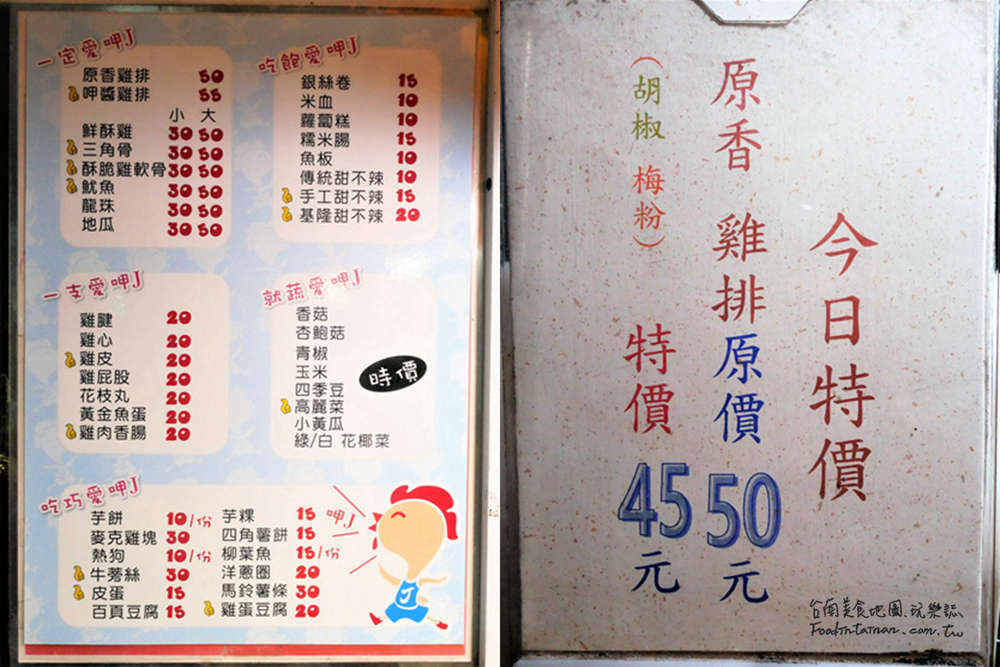 一定愛呷J
原香雞排 50
呷醬雞排 55
小 大
鮮酥雞 30 50
三角骨 30 50
酥脆雞軟骨 30 50
魷魚 30 50
龍珠 30 50
地瓜 30 50
吃飽愛呷J
銀絲卷 15
米血 10
蘿蔔糕 10
糯米腸 15
魚板 10
傳統甜不辣 10
手工甜不辣 15
基隆甜不辣 20
一支愛呷J
雞腱 20
雞心 20
雞皮 20
雞屁股 20
花枝丸 20
黃金魚蛋 20
雞肉香腸 20
就蔬愛呷J
香菇
杏鮑菇
青椒
玉米
四季豆
高麗菜
小黃瓜
綠/白 花椰菜
時價
吃巧愛呷J
芋餅 10/份
麥克雞塊 30
熱狗 10/份
牛蒡絲 30
皮蛋 15
百頁豆腐 15
芋粿 15
四角薯餅 15
柳葉魚 15/份
洋蔥圈 20
馬鈴薯條 30
雞蛋豆腐 20
呷J
今日特價
原香雞排原價50元
(胡椒 梅粉)
特價45元
台南美食地圖.玩樂誌
Foodintainan.com.tw